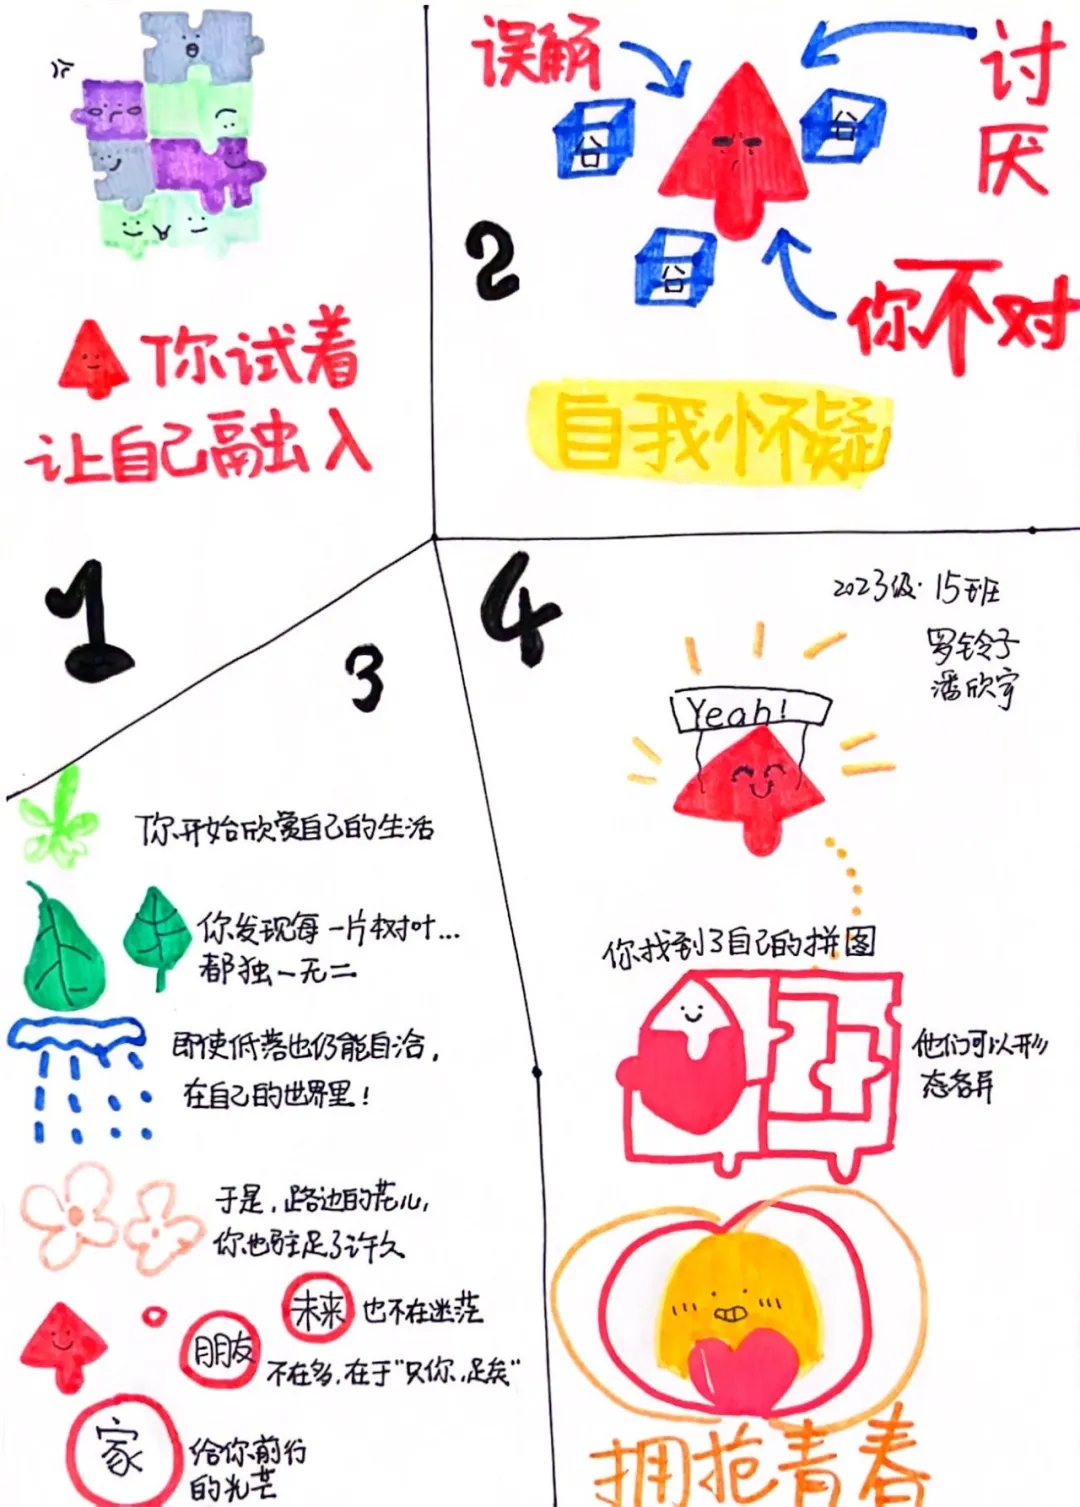 1
你试着
让自己融入
2
误解
讨
厌
你不对
自我怀疑
3
你开始欣赏自己的生活
你发现每一片树叶...
都独一无二
即使低落也仍能自洽,
在自己的世界里!
于是,路边的花儿,
你也驻足了许久
未来 也不在迷茫
朋友 不在多,在于"只你,足矣"
家 给你前行
的光芒
4
2023级·15班
罗铃子
潘欣宇
Yeah!
你找到了自己的拼图
他们可以形
态各异
拥抱青春